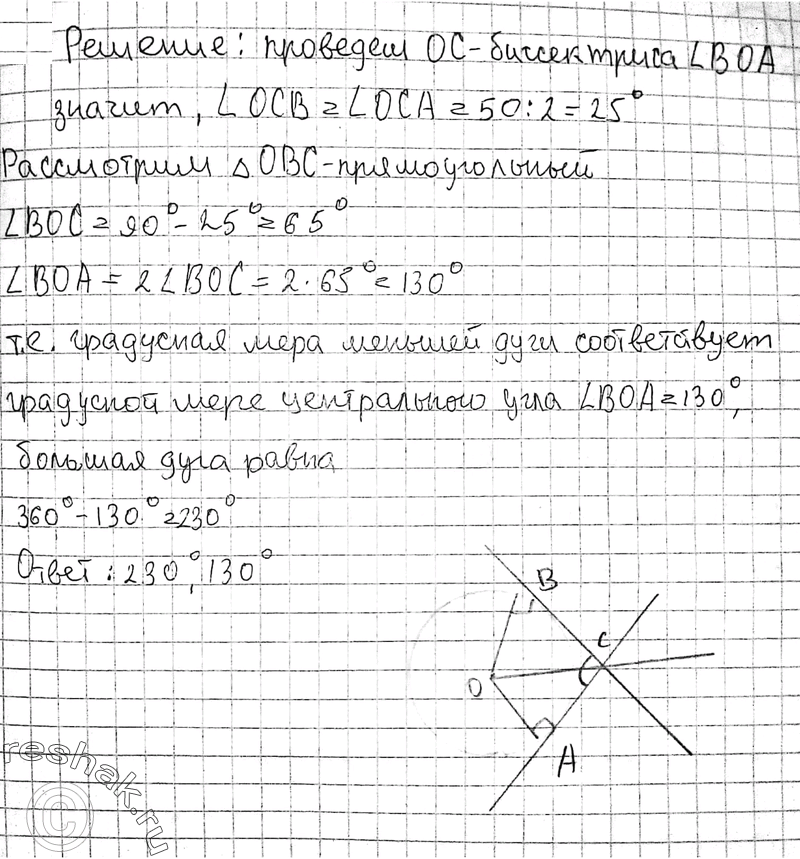 Решение: проведем OC-биссектриса ∠BOA
значит, ∠OCB = ∠OCA = 50:2 = 25°
Рассмотрим △OBC-прямоугольный
∠BOC = 90° - 25° = 65°
∠BOA = 2∠BOC = 2·65° = 130°
т.е. градусная мера меньшей дуги соответствует
градусной мере центрального угла ∠BOA = 130°,
большая дуга равна
360° - 130° = 230°
Ответ: 230°, 130°
B
C
O
A
reshak.ru
©